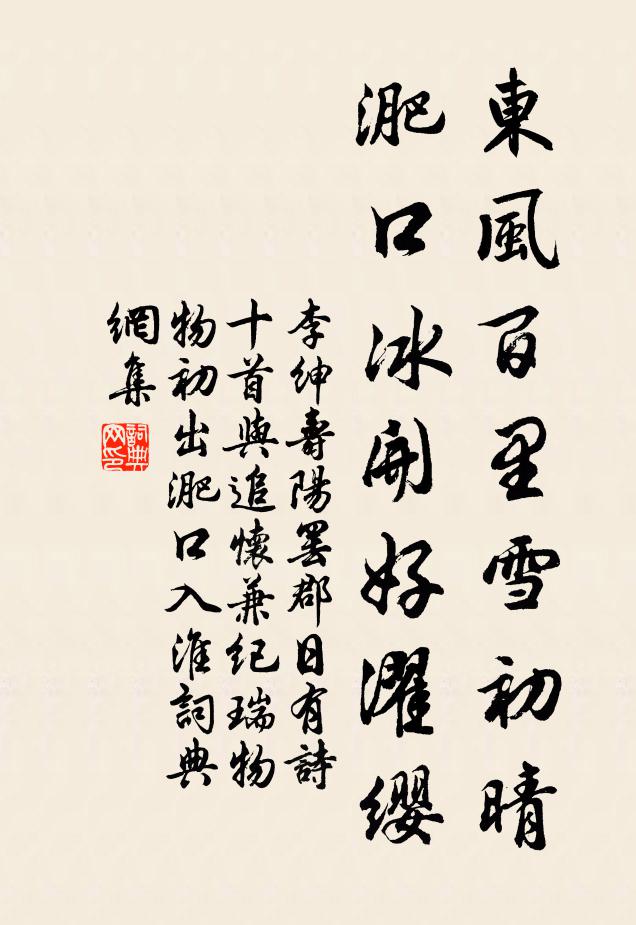 東風百里雪初晴
淝口冰開好濯纓
李紳壽陽罷郡日有詩
十首與追懷兼紀瑞物
物初出淝口入淮詞典
網集
詞典網印